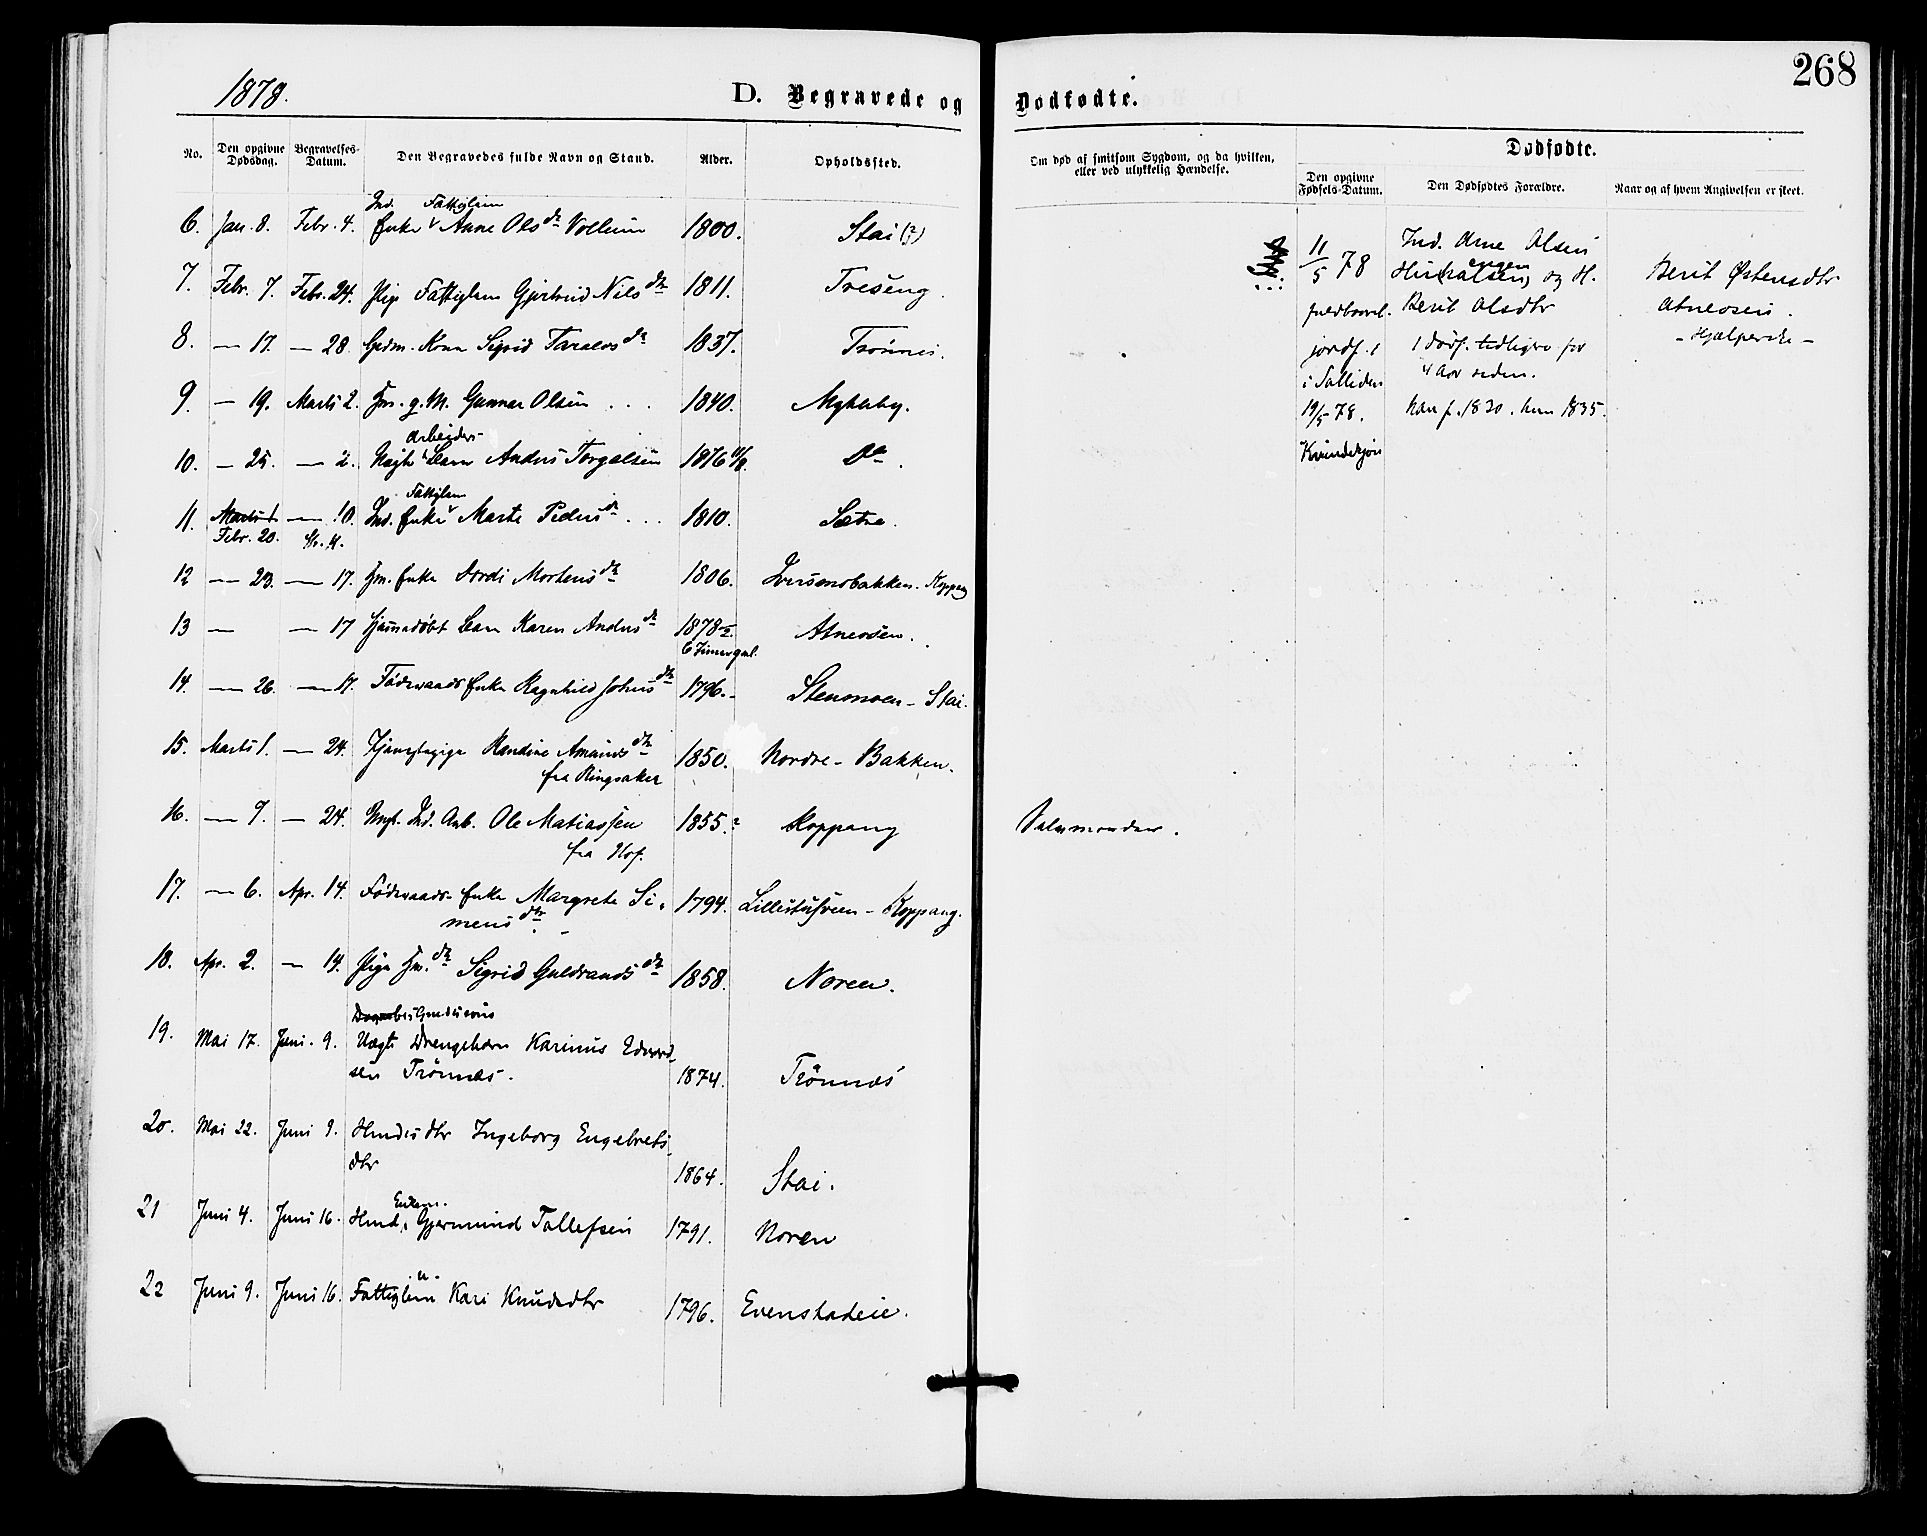 268
1878.
D. Begravede og Dødfødte.
No. Den opgivne Dødsdag. Begravelses-Datum. Den Begravedes fulde Navn og Stand. Alder. Opholdssted.
Om død af smitsom Sygdom, og da hvilken, eller ved ulykkelig Hændelse.
Dødfødte.
Den opgivne Fødsels-Datum. Den Dødfødtes Forældre. Naar og af hvem Angivelsen er skeet.
Ind. Fattiglem
6. Jan. 8. Febr. 4. Enke Anne Olsdr Vollum 1800. Stai (?)
7. Febr. 7. Febr. 24. Pige Fattiglem Gjertrud Nilsdtr 1811. Treseng.
8. — 17. — 28. Gdm. Kone Sigrid Taralds dr 1837. Trönnes.
9. — 19. Marts 2. Gunnar Olsen . . . 1840. Myhleby.
arbeider-
10. — 25. — 2. Barn Anders Torgalsen 1876 11/8. Do.
Fattiglem
11. Marts 1. — 10. Ind. Enke Marte Peders dr . . . 1810. Sætre.
Febr. 20.
12 — 23. — 17. Enke Jordi Mortens dr 1806. Iversmobakken. Koppang
13 — — 17 hjemmedøbt Barn Karen Anders dr 1878 Atneosen.
6 Timer gml.
14. — 26. — 17. Föderaads Enke Ragnhild Johns dtr 1796. Stenmoen – Stai.
15. Marts 1. — 24. Tjenestepige Randine Amunds dtr 1850. Nordre – Bakken.
fra Ringsaker
16. — 9. — 24. Ungk. Ind. Arb. Ole Matiassen 1855.? Koppang
fra Hof.
17. — 6. Apr. 14. Föderaads Enke Margrete Si- 1794. Lillestusveen – Koppang.
mens dtr
18. Apr. 2. — 14. Pige Sigrid Guldrands dtr 1858. Noren.
19. Mai 17. Juni. 9. Uægte Drengebarn Karinus Edvard-
sen Trönnes. 1874. Trönnes
20. Mai 22. Juni 9. Hmdsdtr Ingeborg Engebrets-
dtr 1864. Stai.
Enkem.
21 Juni 4. Juni 16. Hmd. Gjermund Tollefsen 1791. Noren
22 Juni 9. Juni 16. Fattiglem Kari Knudsdtr 1796. Evenstadeie.
11/5 78 Ind. Arne Olsen
engen
og H. Berit Østensdtr
fuldbaaret. Berit Olsdtr Atneosen.
jordf. 1 dödf. tidligere for – Hjælperske –
i Solliden 4 Aar siden.
19/5 78. Han f. 1830. hun 1835.
Kvindekjön